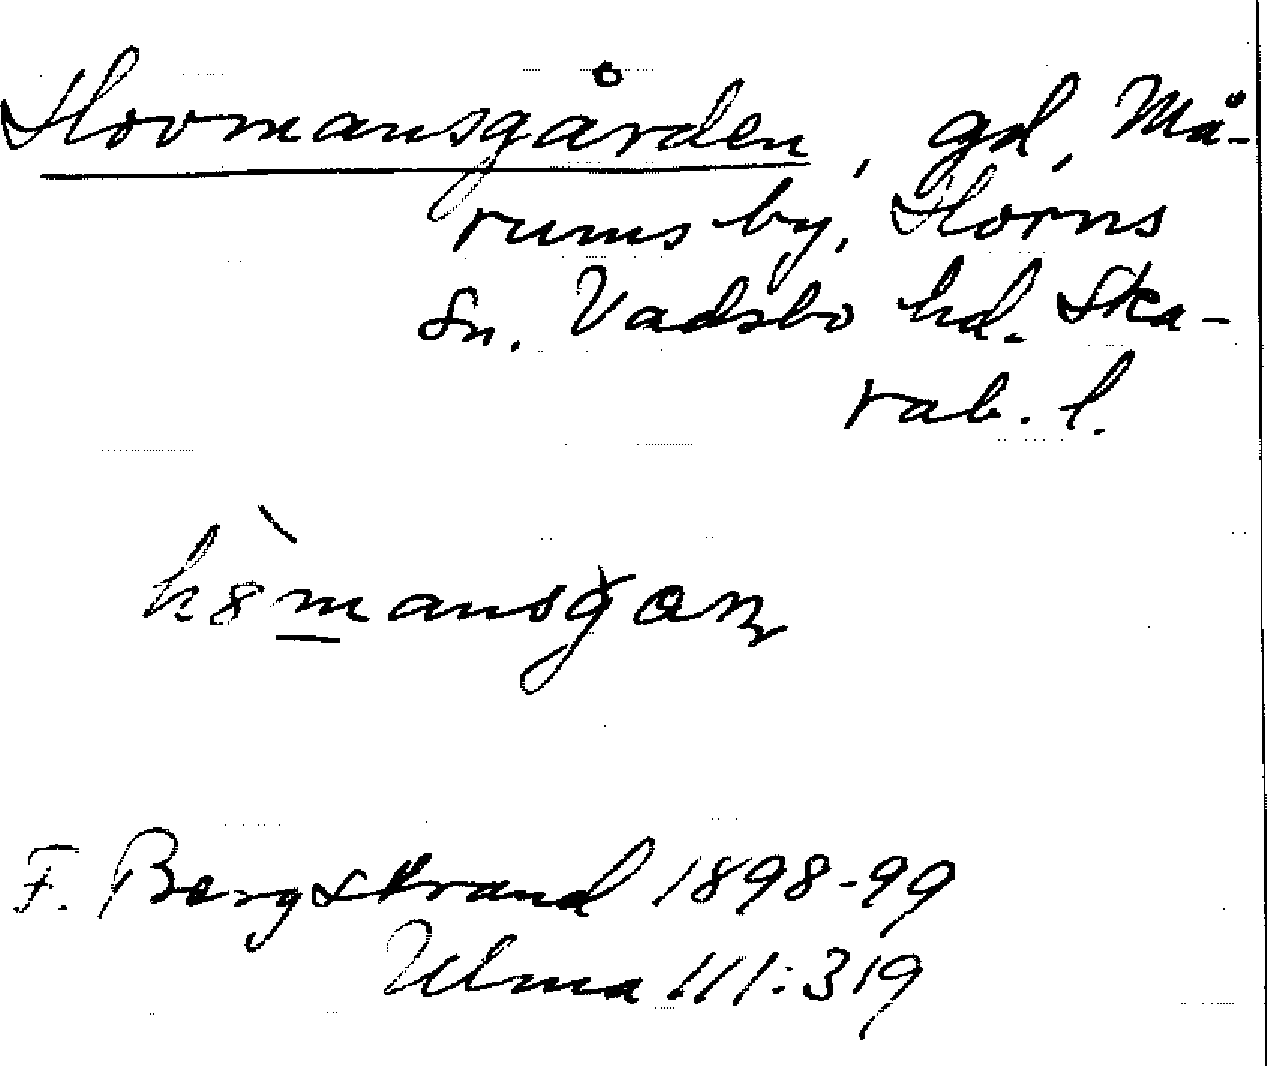 Hovmansgården, gd, Må-
rums by, Horns
sn. Vadsbo hd. Ska-
rab. l.
F. Bergstrand 1898-99
Ulma 111:319